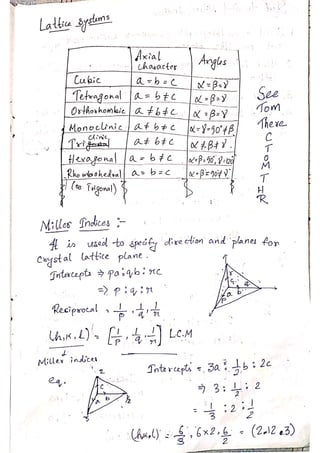 Lattice systems
Axial character Angles
Cubic a = b = c α = β = γ
Tetragonal a = b ≠ c α = β = γ
Orthorhombic a ≠ b ≠ c α = β = γ
Monoclinic a ≠ b ≠ c α = γ = 90° ≠ β
Triclinic a ≠ b ≠ c α ≠ β ≠ γ.
Hexagonal a = b ≠ c α = β = 90°, γ = 120
Rhombohedral a = b = c α = β = 90° ≠ γ
(or Trigonal)
See
Tom
There
C
T
O
M
T
H
R
Miller Indices :-
It is used to specify direction and planes for
crystal lattice plane.
Intercepts ⇒ pa : qb : rc
⇒ p : q : r
Reciprocal = 1/p : 1/q : 1/r
(h, k, l) = [1/p, 1/q, 1/r] L.C.M
Miller indices
eg.
Intercepts = 3a : 1/2 b : 2c
⇒ 3 : 1/2 : 2
= 1/3 : 2 : 1/2
(h,k,l) = 6/3, 6×2, 6/2 = (2,12,3)